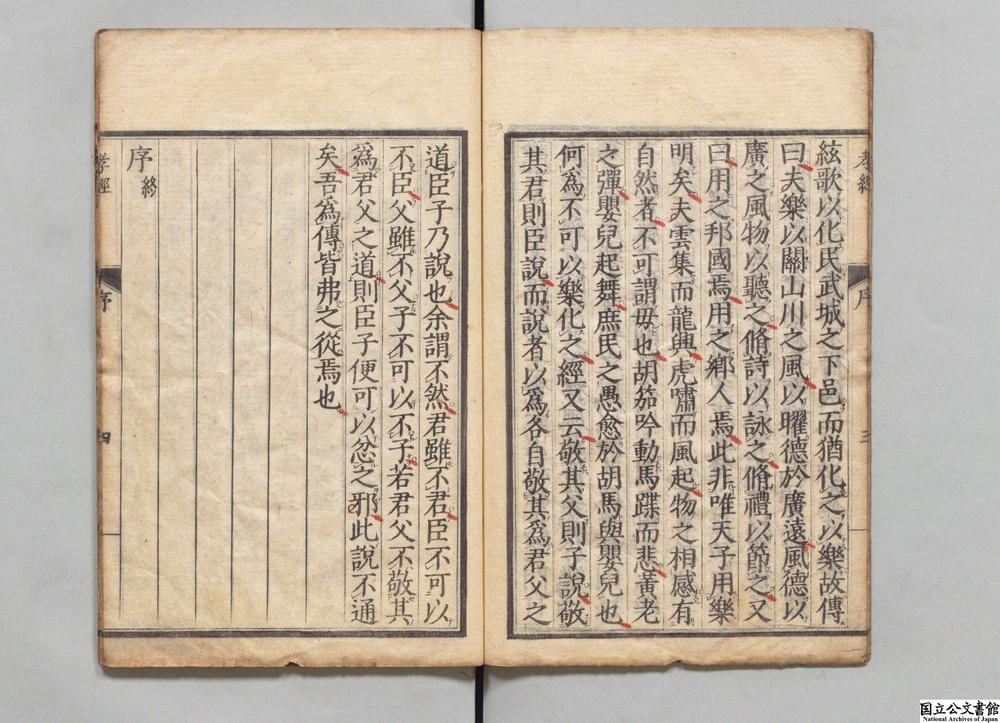 絃歌以化民武城之下邑而猶化之以樂故傳
曰夫樂以關山川之風以曜德於廣遠風德以
廣之風物以聽之脩詩以詠之脩禮以節之又
曰用之邦國焉用之鄉人焉此非唯天子用樂
明矣夫雲集而龍興虎嘯而風起物之相感有
自然者不可謂毋也胡笳吟動馬蹀而悲黃老
之彈嬰兒起舞庶民之愚愈於胡馬與嬰兒也
何爲不可以樂化之經又云敬其父則子說敬
其君則臣說而說者以爲各自敬其爲君父之
孝經
序
三
道臣子乃說也余謂不然君雖不君臣不可以
不臣父雖不父子不可以不子若君父不敬其
爲君父之道則臣子便可以忿之邪此說不通
矣吾爲傳皆弗之從焉也
序終
孝經
序
四
国立公文書館
National Archives of Japan